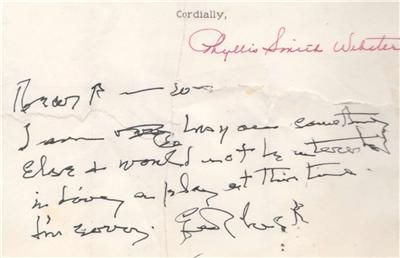 Cordially,
Phyllis Smith Webster
I am so busy on something
else & would not be interested
in doing a play at this time.
I'm sorry. Good luck